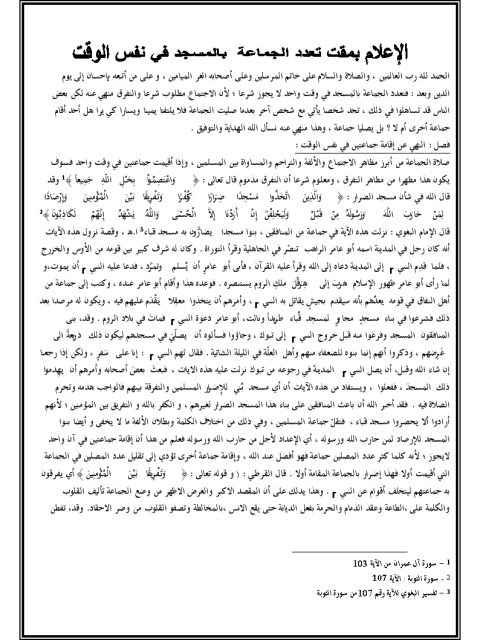 الإعلام بمقت تعدد الجماعة بالمسجد في نفس الوقت
الحمد لله رب العالمين ، والصلاة والسلام على خاتم المرسلين وعلى أصحابه الغر الميامين ، و على من أتبعه بإحسان إلى يوم
الدين وبعد : فتعدد الجماعة بالمسجد في وقت واحد لا يجوز شرعا ؛ لأن الاجتماع مطلوب شرعا والتفرق منهي عنه لكن بعض
الناس قد تساهلوا في ذلك ، تجد شخصا يأتي مع شخص آخر بعدما صليت الجماعة فلا يلتفتا يمينا ويسارا كي يرا هل أحد أقام
جماعة أخرى أم لا ؟ بل يصليا جماعة ، وهذا منهي عنه نسأل الله الهداية والتوفيق .
فصل : النهي عن إقامة جماعتين في نفس الوقت :
صلاة الجماعة من أبرز مظاهر الاجتماع والألفة والتراحم والمساواة بين المسلمين ، وإذا أقيمت جماعتين في وقت واحد فسوف
يكون هذا مظهرا من مظاهر التفرق ، ومعلوم شرعا أن التفرق مذموم قال تعالى : ﴿ وَاعْتَصِمُواْ بِحَبْلِ اللَّهِ جَمِيعاً ﴾1 وقد
قال الله في شأن مسجد الضرار : ﴿ وَالَّذِينَ اتَّخَذُوا مَسْجِدًا ضِرَارًا وَكُفْرًا وَتَفْرِيقًا بَيْنَ الْمُؤْمِنِينَ وَإِرْصَادًا
لِمَنْ حَارَبَ اللَّهَ وَرَسُولَهُ مِنْ قَبْلُ وَلَيَحْلِفُنَّ إِنْ أَرَدْنَا إِلاَّ الْحُسْنَى وَاللَّهُ يَشْهَدُ إِنَّهُمْ لَكَاذِبُونَ ﴾2
قال الإمام البغوي : نزلت هذه الآية في جماعة من المنافقين ، بنوا مسجدا يضارُّون به مسجد قباء3 ا.هـ ، وقصة نزول هذه الآيات
أنه كان رجل في المدينة اسمه أبو عامر الراهب تنصّر في الجاهلية وقرأ التوراة . وكان له شرف كبير بين قومه من الأوس والخزرج
، فلما قدِم النبي r إلى المدينة دعاه إلى الله وقرأ عليه القرآن ، فأبى أبو عامرٍ أن يُسلم وتمرَّد ، فدعا عليه النبي r أن يموت،و
لما رأى أبو عامر ظهور الإسلام هرَبَ إلى هِرَقْل ملكِ الروم يستنصره . فوعده هذا وأقام أبو عامر عنده ، وكتب إلى جماعة من
أهل النفاق في قومه يعدُهم بأنه سيقدم بجيشٍ يقاتل به النبي r ، وأمرهم أن يتخذوا معقِلا يَقْدَم عليهم فيه ، ويكون له مرصدا بعد
ذلك فشرعوا في بناء مسجدٍ مجاورٍ لمسجد قُباء طريداً ونالت، أبو عامر دعوة النبي r فمات في بلاد الروم . وقد، بنى
المنافقون المسجد وفرغوا منه قبل خروج النبي r إلى تبوك ، وجاؤوا فسألوه أن يصلّيَ في مسجدهم ليكون ذلك ذريعةً الى
غَرضِهم ، وذكروا أنهم إنما بنوه للضعفاء منهم وأهل العلّة في الليلة الشاتية . فقال لهم النبي r : إنا على سَفرٍ ، ولكن إذا رجعنا
إن شاء الله وقبل، أن يصل النبي r المدينةَ في رجوعه من تبوك نزلت عليه هذه الايات ، فبعثَ بعضَ أصحابه وأمرهم أن يهدِموا
ذلك المسجد ، ففعلوا ، ويستفاد من هذه الآيات أن أي مسجد بُني للإضرار المسلمين والتفرقة بينهم فالواجب هدمه وتحرم
الصلاة فيه . فقد أخبر الله أن باعث المنافقين على بناء هذا المسجد الضرار لغيرهم ، و الكفر بالله و التفريق بين المؤمنين ؛ لأنهم
أرادوا ألا يحضروا مسجد قباء ، فتقلّ جماعة المسلمين ، وفي ذلك من اختلاف الكلمة وبطلان الألفة ما لا يخفى و أيضا بنوا
المسجد للإرصاد لمن حارب الله ورسوله ، أي الإعداد لأجل من حارب الله ورسوله فعلم من هذا أن إقامة جماعتين في آن واحد
لايجوز ؛ لأنه كلما كثر عدد المصلين جماعة فهو أفضل عند الله ، وإقامة جماعة أخرى تؤدي إلى تقليل عدد المصلين في الجماعة
التي أقيمت أولا فهذا إضرار بالجماعة المقامة أولا . قال القرطبي : ( و قوله تعالى : ﴿ وَتَفْرِيقًا بَيْنَ الْمُؤْمِنِينَ ﴾ أي يفرقون
به جماعتهم ليتخلف أقوام عن النبي r . وهذا يدلك على أن المقصد الاكبر والغرض الاظهر من وضع الجماعة تأليف القلوب
والكلمة على ،الطاعة وعقد الذمام والحرمة بفعل الديانة حتى يقع الانس ،بالمخالطة وتصفو القلوب من وضر الاحقاد. وقد، تفطن
1 – سورة آل عمران من الآية 103
2 - سورة التوبة : الآية 107
3 – تفسير البغوي للآية رقم 107من سورة التوبة